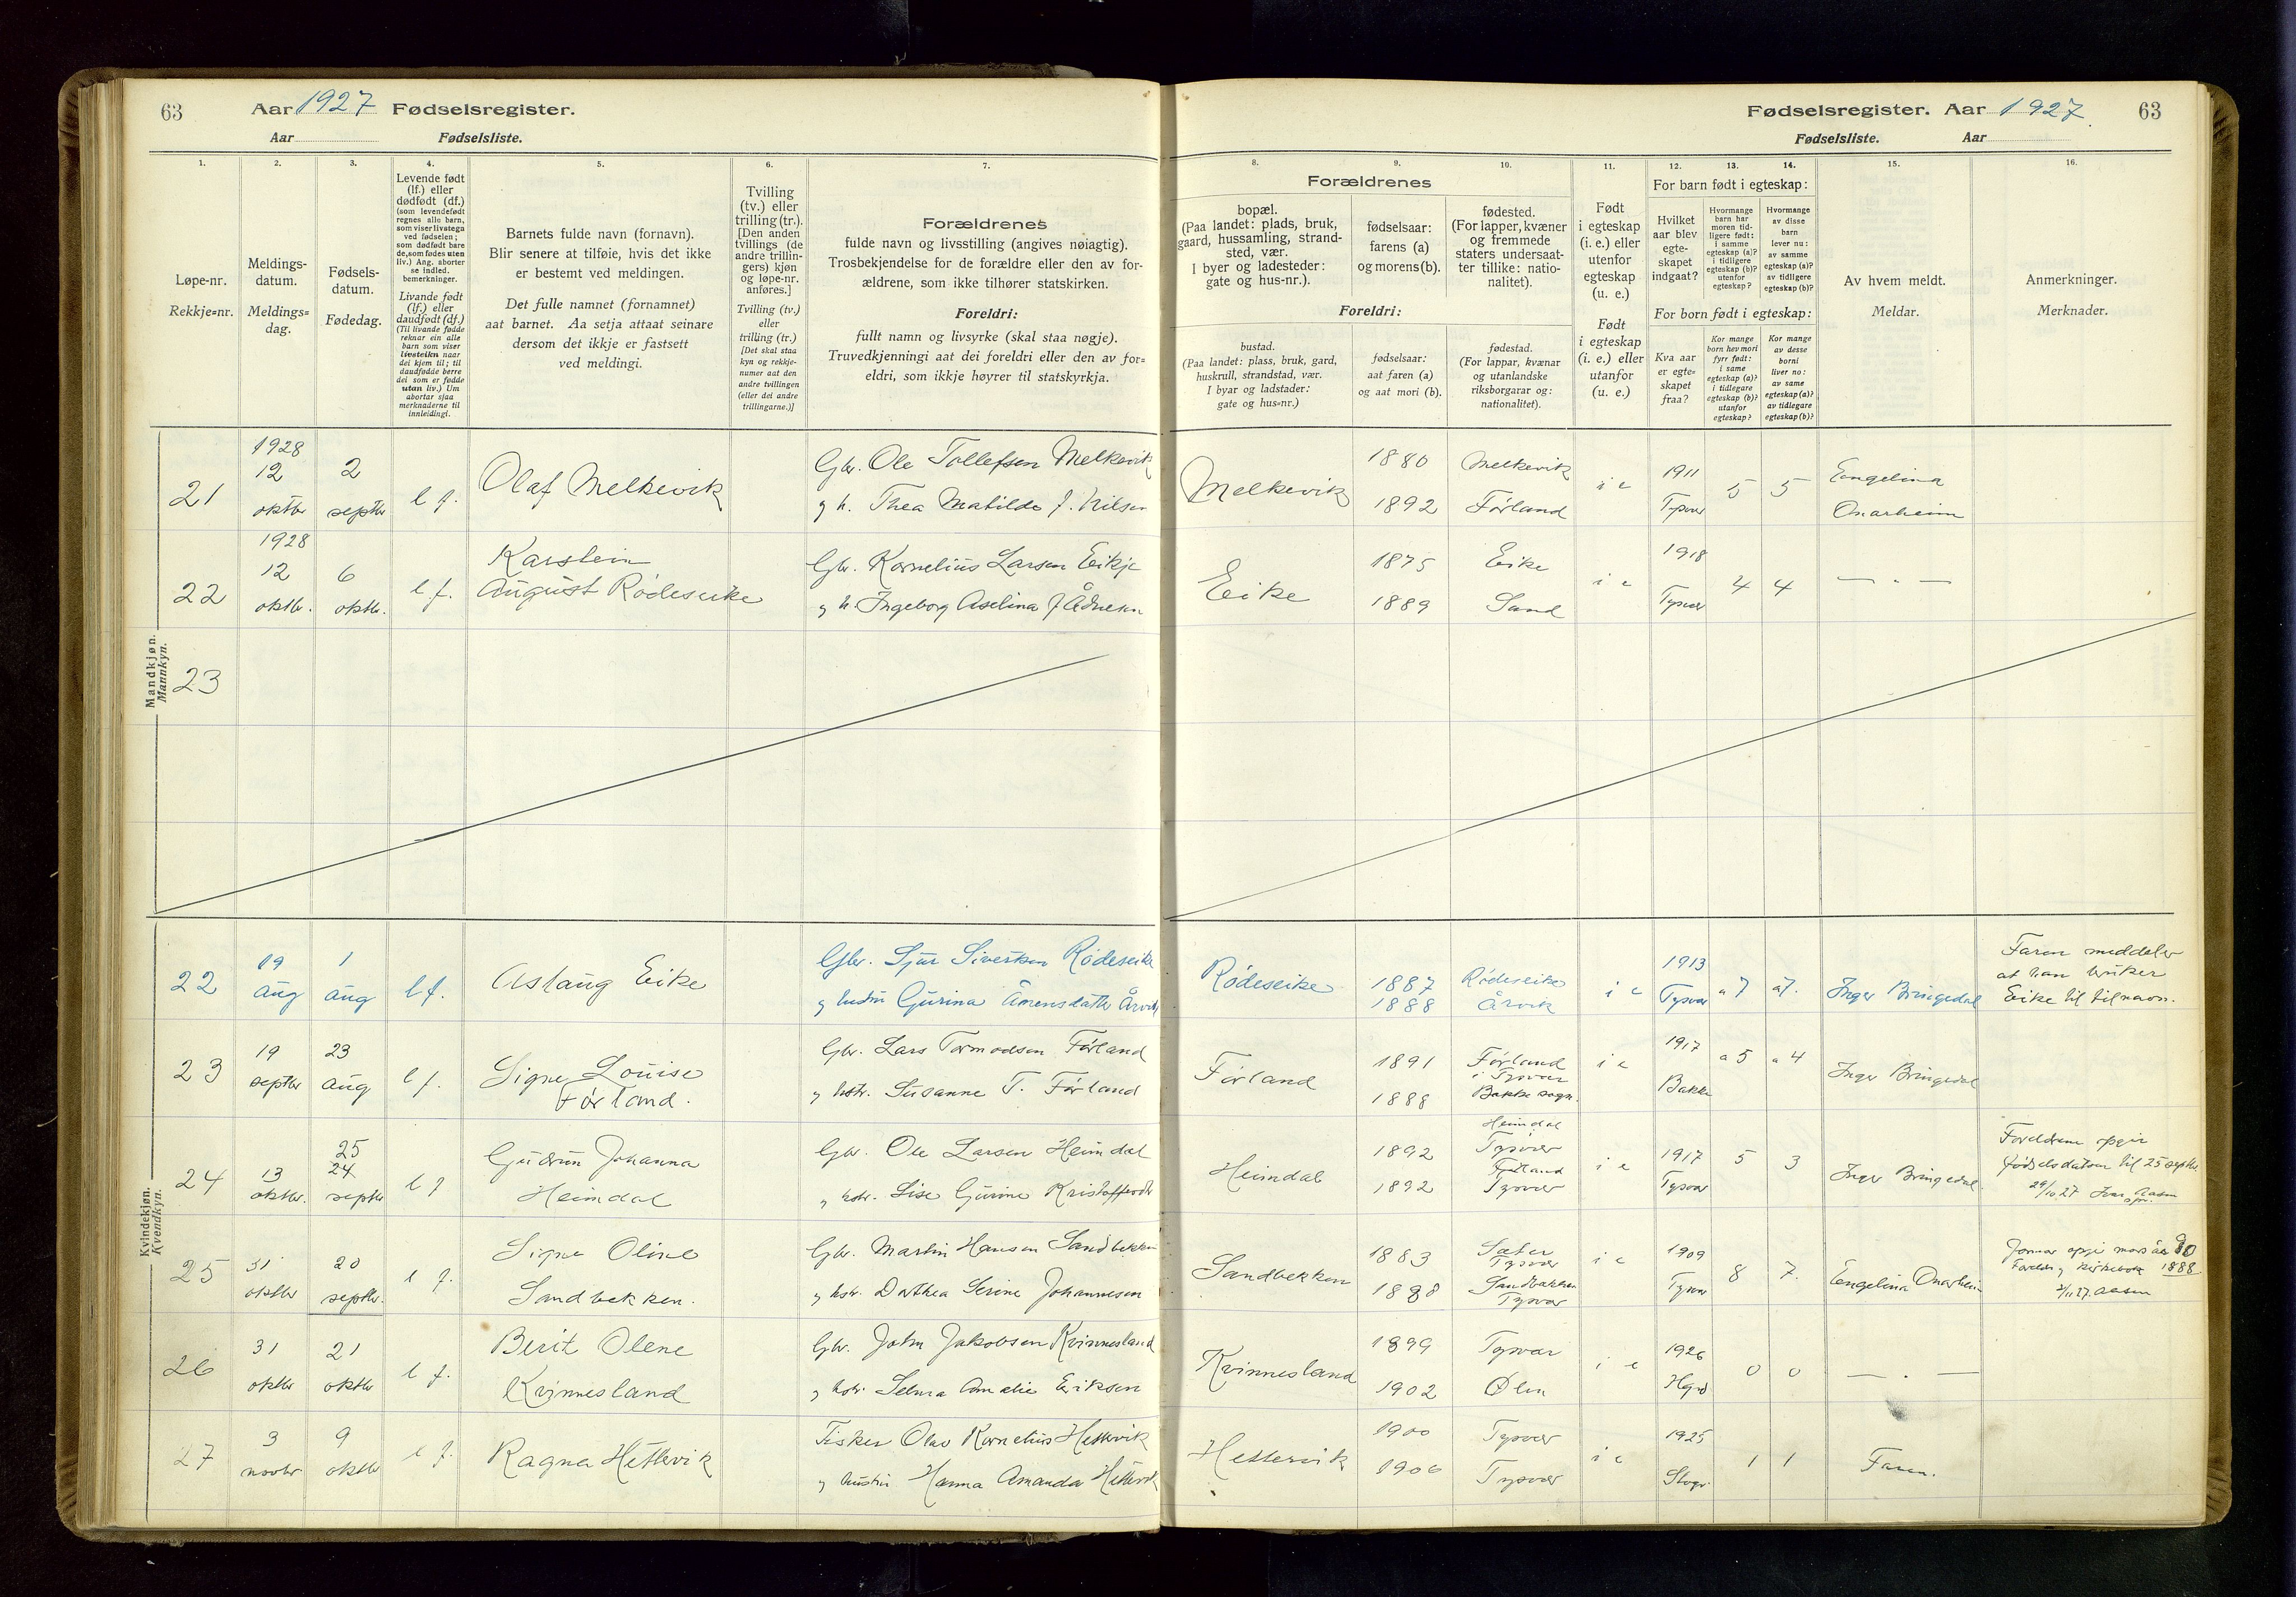 63 Aar 1927 Fødselsregister.
Aar Fødselsliste.
1. 2. 3. 4. 5. 6. 7.
Løpe-nr.
Rekkje=nr.
Meldings-
datum.
Meldings=
dag.
Fødsels-
datum.
Fødedag.
Levende født
(lf.) eller
dødfødt (df.)
(som levendefødt
regnes alle barn,
som viser livstegn
ved fødselen;
som dødfødt bare
de, som fødes uten
liv.) Ang. aborter
se indled.
bemerkninger.
Livande født
(lf.) eller
daudfødt (df.)
(Til livande fødde
reknar ein alle
barn som viser
livsteikn naar
dei kjem til; til
daudfødde berre
dei som er fødde
utan liv.) Um
abortar sjaa
merknaderne til
innleidingi.
Barnets fulde navn (fornavn).
Blir senere at tilføie, hvis det ikke
er bestemt ved meldingen.
Det fulle namnet (fornamnet)
aat barnet. Aa setja attaat seinare
dersom det ikkje er fastsett
ved meldingi.
Tvilling
(tv.) eller
trilling (tr.).
[Den anden
tvillings (de
andre trillin-
gers) kjøn
og løpe-nr.
anføres.]
Tvilling (tv.)
eller
trilling (tr.)
[Det skal staa
kyn og rekkje-
numer aat den
andre tvillingen
(eller dei andre
trillingarne.)]
Forældrenes
fulde navn og livsstilling (angives nøiagtig).
Trosbekjendelse for de forældre eller den av for-
ældrene, som ikke tilhører statskirken.
Foreldri:
fullt namn og livsyrke (skal staa nøgje).
Truvedkjenningi aat dei foreldri eller den av for=
eldri, som ikkje høyrer til statskyrkja.
Mandkjøn.
Mannkyn.
21
1928
12
oktbr
2
septbr
l f.
Olaf Melkevik
Gbr. Ole Tollefsen Melkevik
og h. Thea Matilde f. Nilsen
22
1928
12
oktbr.
6
oktbr.
l. f.
Karstein
August Rødeseike
Gbr. Kornelius Larsen Eikje
og h. Ingeborg Aselina f
23
Kvindekjøn.
Kvendkyn.
22
19
aug
1
aug
l f.
Aslaug Eike
Gbr. Sjur Sivertsen Rødeseike
og hustru Gurina Årvik
23
19
septbr
23
aug
l f.
Signe Louise
Førland.
Gbr. Lars Tormodsen Førland
og hstr. Susanne T. Førland
24
13
oktbr.
25
24
septbr
l f
Gudrun Johanna
Heimdal
Gbr. Ole Larsen Heimdal
og hstr. Lise Gurine
25
31
oktbr
20
septbr.
l f.
Signe Oline
Sandbekken.
Gbr. Martin Hansen Sandbekken
og hstr. Dorthea Serine Johannesen
26
31
oktbr
21
oktbr
l f.
Berit Olene
Kvinnesland
Gbr. John Jakobsen Kvinnesland
og hstr. Selma Amalie Eriksen
27
3
novbr
9
oktbr
l f.
Ragna Hettervik
Fisker Olav Kornelius Hettervik
og hustru Hanna Amanda Hettervik
Fødselsregister. Aar 1927. 63
Fødselsliste. Aar
8. 9. 10. 11. 12. 13. 14. 15. 16.
Forældrenes
bopæl.
(Paa landet: plads, bruk,
gaard, hussamling, strand-
sted, vær.
I byer og ladesteder:
gate og hus-nr.).
fødselsaar:
farens (a)
og morens (b).
fødested.
(For lapper, kvæner
og fremmede
staters undersaat-
ter tillike: natio-
nalitet).
Foreldri:
bustad.
(Paa landet: plass, bruk, gard,
huskrull, strandstad, vær.
I byar og ladstader:
gate og hus=nr.)
fødselsaar:
aat faren (a)
og aat mori (b).
fødestad.
(For lappar, kvænar
og utanlandske
riksborgarar og:
nationalitet).
Født
i egteskap
(i. e.) eller
utenfor
egteskap
(u. e.)
Født
i egteskap
(i. e.) eller
utanfor
egteskap
(u. e.)
For barn født i egteskap:
Hvilket
aar blev
egte-
skapet
indgaat?
Hvormange
barn har
moren tid-
ligere født:
i samme
egteskap (a)?
i tidligere
egteskap (b)?
utenfor
egteskap?
Hvormange
av disse
barn
lever nu:
av samme
egteskap (a)?
av tidligere
egteskap (b)?
For born født i egteskap:
Kva aar
er egte=
skapet
fraa?
Kor mange
born hev mori
fyrr født:
i same
egteskap (a)?
i tidlegare
egteskap (b)?
utanfor
egteskap?
Kor mange
av desse
borni
liver no:
av same
egteskap (a)?
av tidlegare
egteskap (b)?
Av hvem meldt.
Meldar.
Anmerkninger.
Merknader.
Melkevik
1880
1892
Melkevik
Førland
i e
1911
Tysvær
5 5
Engelina
Onarheim
Eike
1875
1889
Eike
Sand
i e
1918
Tysvær
4 4
— " —
Rødeseike
1887
1888
Rødeseike
Årvik
i e
1913
Tysvær
a 7 a 7.
Inger Bringedal
Faren meddeler
at han bruker
Eike til tilnavn.
Førland
1891
1888
Førland
i Tysvær
Bakke sogn.
i e
1917
Bakke
a 5 a 4
Inger Bringedal
Heimdal
1892
1892
Heimdal
Tysvær
Førland
Tysvær
i e
1917
Tysvær
5 3
Inger Bringedal.
Foreldrene opgir
fødselsdatoen til 25 septbr
29/10 27
Sandbekken
1883
1888
Sæter
Tysvær
Sandbekken
Tysvær
i e
1909
Tysvær
8 7.
Engelina Onarheim
1888
2/11 27. Aasen
Kvinnesland
1899
1902
Tysvær
Ølen
i e
1926
0 0
— " —
Hettervik
1900
1906
Tysvær
Tysvær
i e
1925
1 1
Faren.